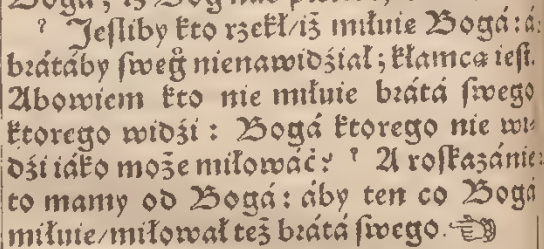 Bogá; iż Bog nas
² Jeſliby kto rzekł/iż miłuie Bogá: á:
brátáby ſwegͦ nienawidźiał; kłamcą ieſt.
Abowiem kto nie miłuie brátá ſwego
ktorego widźi : Bogá ktorego nie wi⸗
dźi iáko może miłowáć? ² A roſkazánie:
to mamy od Bogá: áby ten co Bogá
miłuie/miłował też brátá ſwego. ☜